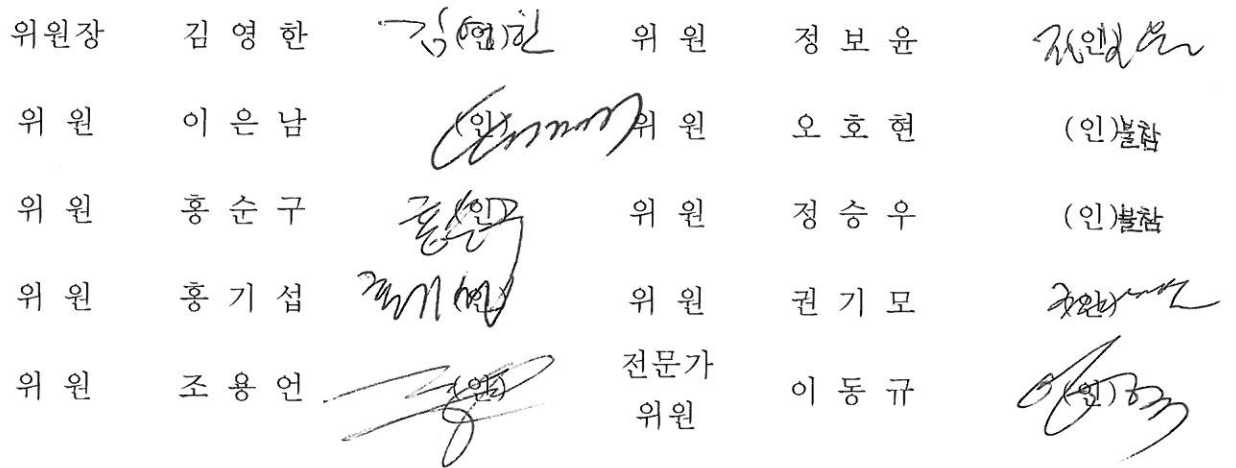 위원장 김 영 한 김(인)한 위 원 정 보 윤 (인)
위 원 이 은 남 (인) 위 원 오 호 현 (인)불참
위 원 홍 순 구 홍(인)구 위 원 정 승 우 (인)불참
위 원 홍 기 섭 홍기(인) 위 원 권 기 모 (인)
위 원 조 용 언 (인) 전문가 위원 이 동 규 (인)